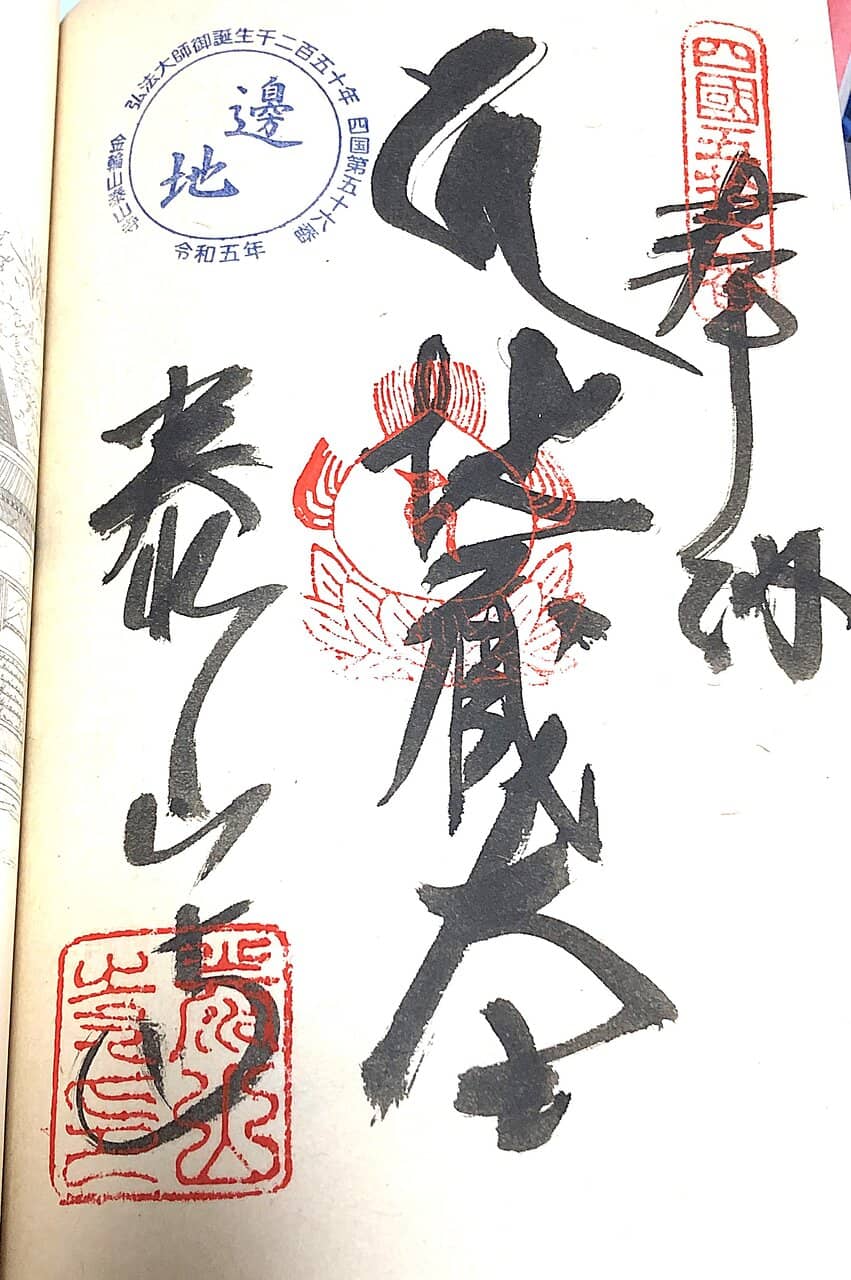 四國五拾六番
奉納
地蔵大士
泰山寺
弘法大師御誕生千二百五十年
四国第五十六番
邊地
金輪山泰山寺
令和五年